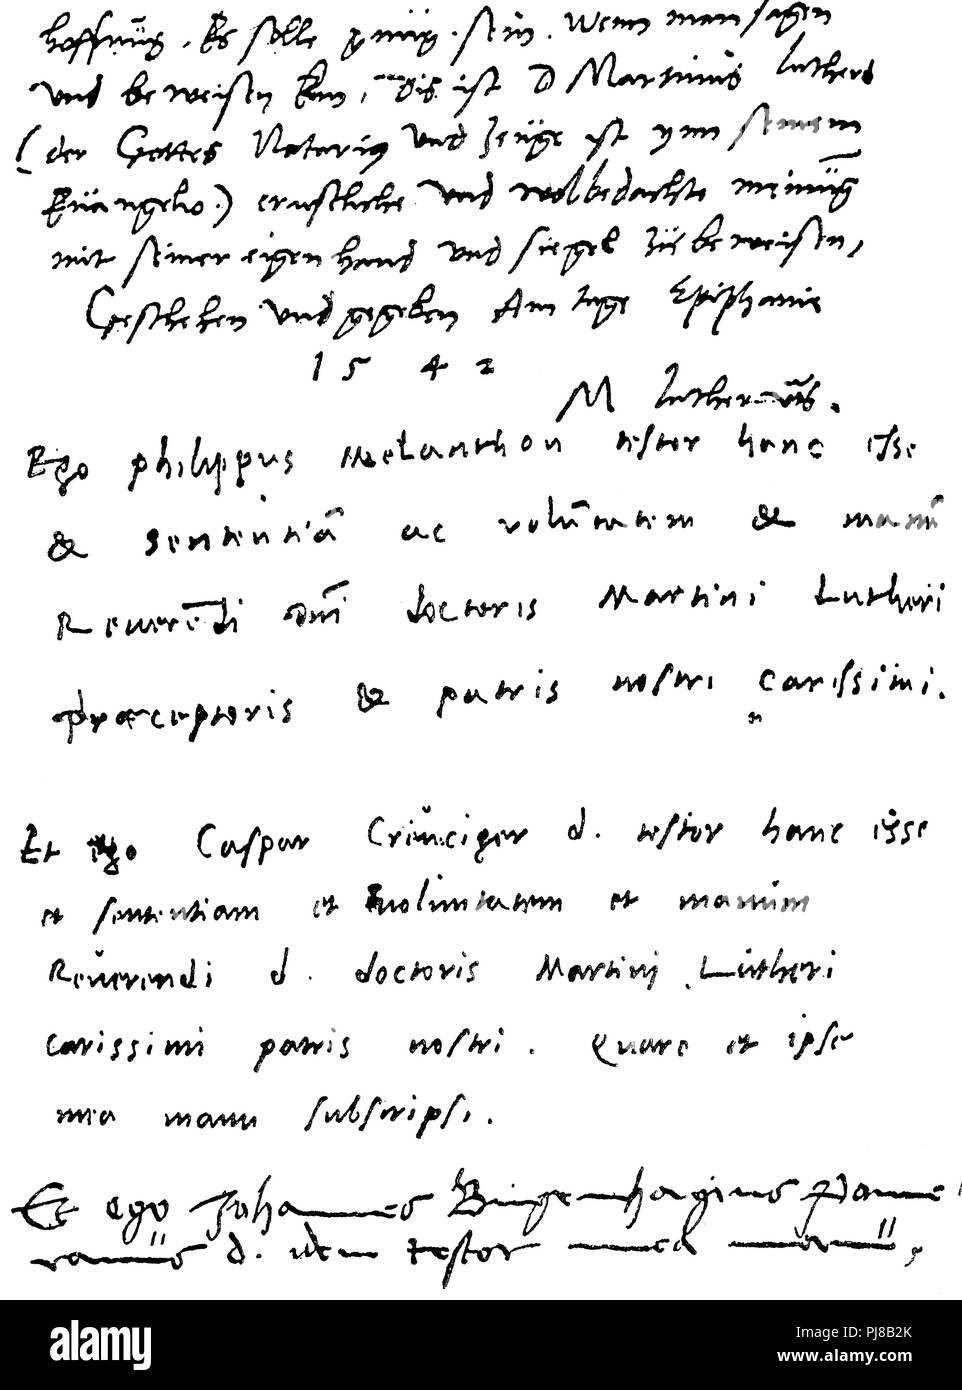 hoffnūg. Es solle gnūg sein. Wenn man sagen
und beweisen kan, Dis ist D Martinus Luthers
(der Gottes Notarius und Zeuge ist ynn seinem
Euangelio.) ernstliche und wolbedachte meinūg
mit seiner eigen hand und siegel zu beweisen,
Geschehen und gegeben Am tage Epiphanie
1542
M Lutherus.
Ego philippus Melanthon testor hanc esse
& sententiā ac volūtatem & manū
Reverēdi dn̄i doctoris Martini Lutheri
præceptoris & patris nostri carissimi.
Et ego Caspar Crŭciger d. testor hanc esse
et sententiam et voluntatem et manum
Reŭerendi d. doctoris Martini Lŭtheri
carissimi patris nostri. Quare et ipse
mea manu subscripsi.
Et ego Johannes Bugenhagius Pome
ranus d. idem testor mea manu,
alamy
Image ID: PJ8B2K
www.alamy.com